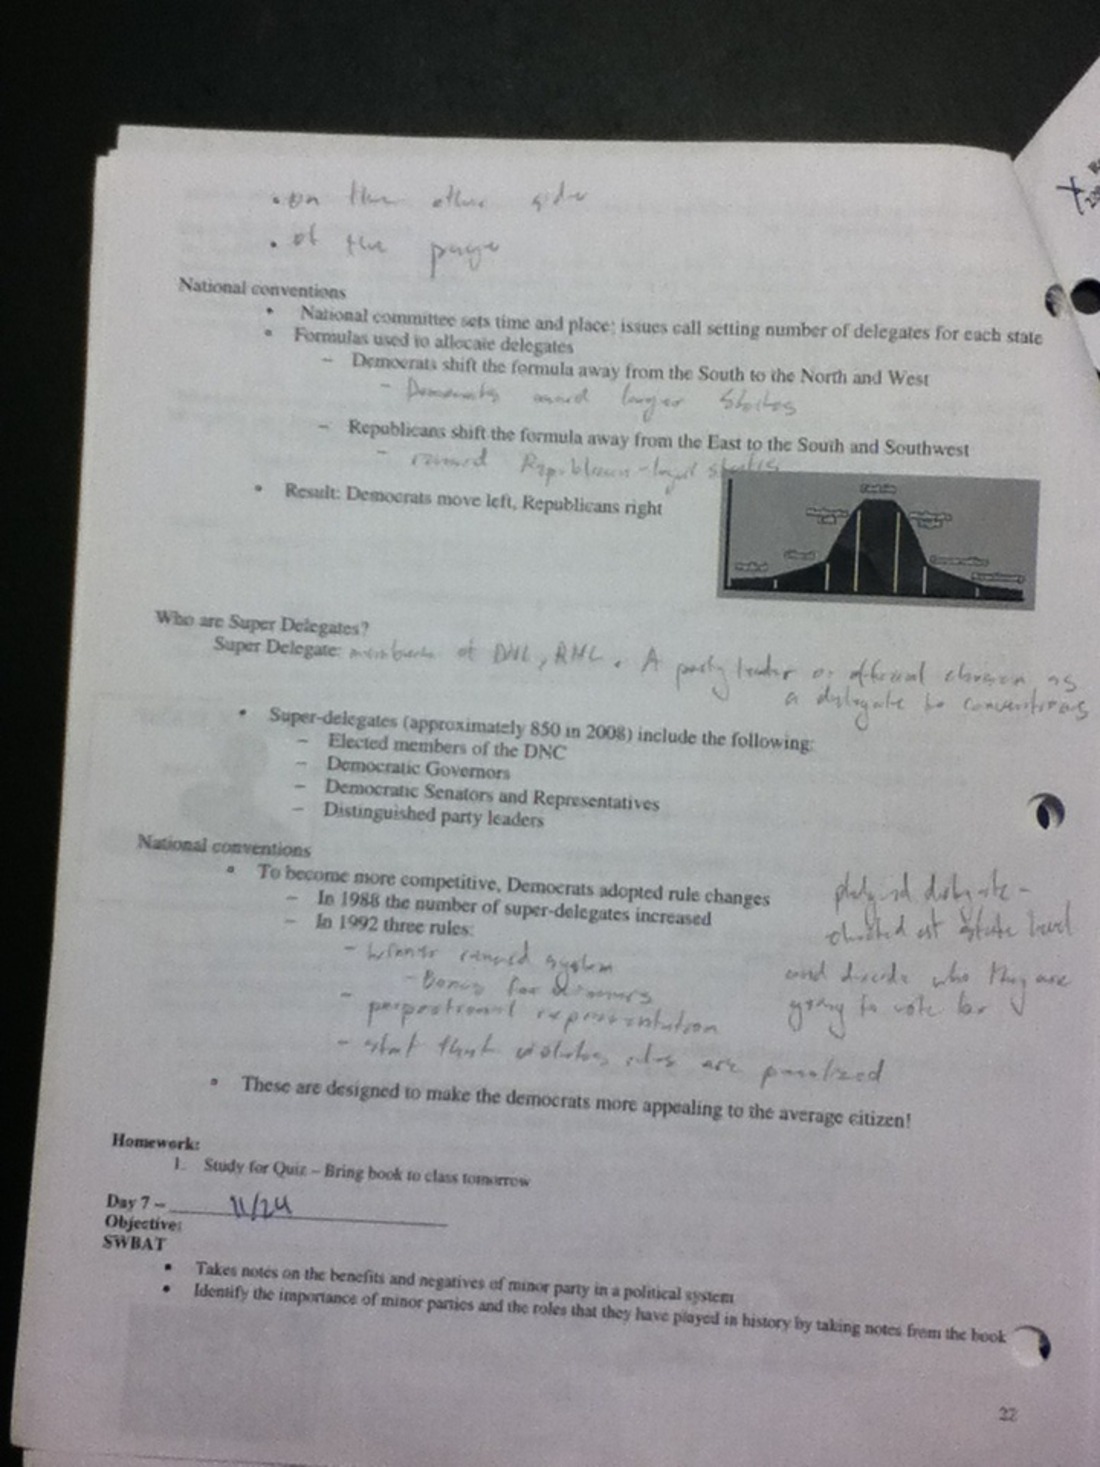 • on the other side
• of the page
National conventions
• National committee sets time and place; issues call setting number of delegates for each state
• Formulas used to allocate delegates
– Democrats shift the formula away from the South to the North and West
- Democrats award larger states
– Republicans shift the formula away from the East to the South and Southwest
- reward Republican-loyal states
• Result: Democrats move left, Republicans right
Who are Super Delegates?
Super Delegate: members of DNC, RNC. A party leader or official chosen as
a delegate to conventions
• Super-delegates (approximately 850 in 2008) include the following:
– Elected members of the DNC
– Democratic Governors
– Democratic Senators and Representatives
– Distinguished party leaders
National conventions
• To become more competitive, Democrats adopted rule changes
– In 1988 the number of super-delegates increased
– In 1992 three rules:
- winner reward system
- Bonus for winners
- proportional representation
- that violates rules are penalized
pledged delegate -
elected at state level
and decide who they are
going to vote for
• These are designed to make the democrats more appealing to the average citizen!
Homework:
1. Study for Quiz – Bring book to class tomorrow
Day 7 – 11/24
Objective:
SWBAT
• Takes notes on the benefits and negatives of minor party in a political system
• Identify the importance of minor parties and the roles that they have played in history by taking notes from the book
22